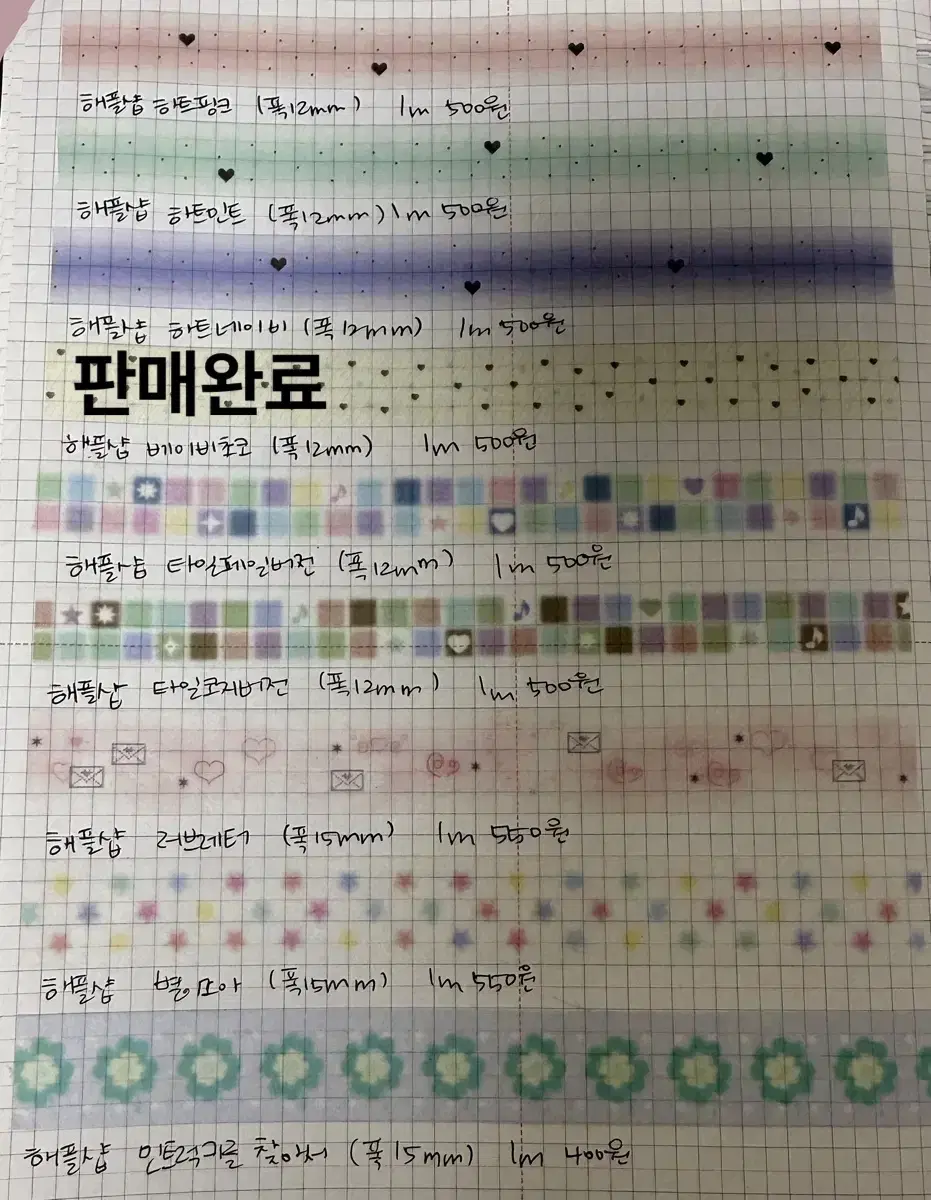 해플샵 하트핑크 (폭12mm) 1m 500원
해플샵 하트민트 (폭12mm) 1m 500원
해플샵 하트네이비 (폭12mm) 1m 500원
판매완료
해플샵 베이비초코 (폭12mm) 1m 500원
해플샵 타일페일버전 (폭12mm) 1m 500원
해플샵 타일코지버전 (폭12mm) 1m 500원
해플샵 러브레터 (폭15mm) 1m 550원
해플샵 별모아 (폭15mm) 1m 550원
해플샵 민트럭키를 찾아서 (폭15mm) 1m 400원